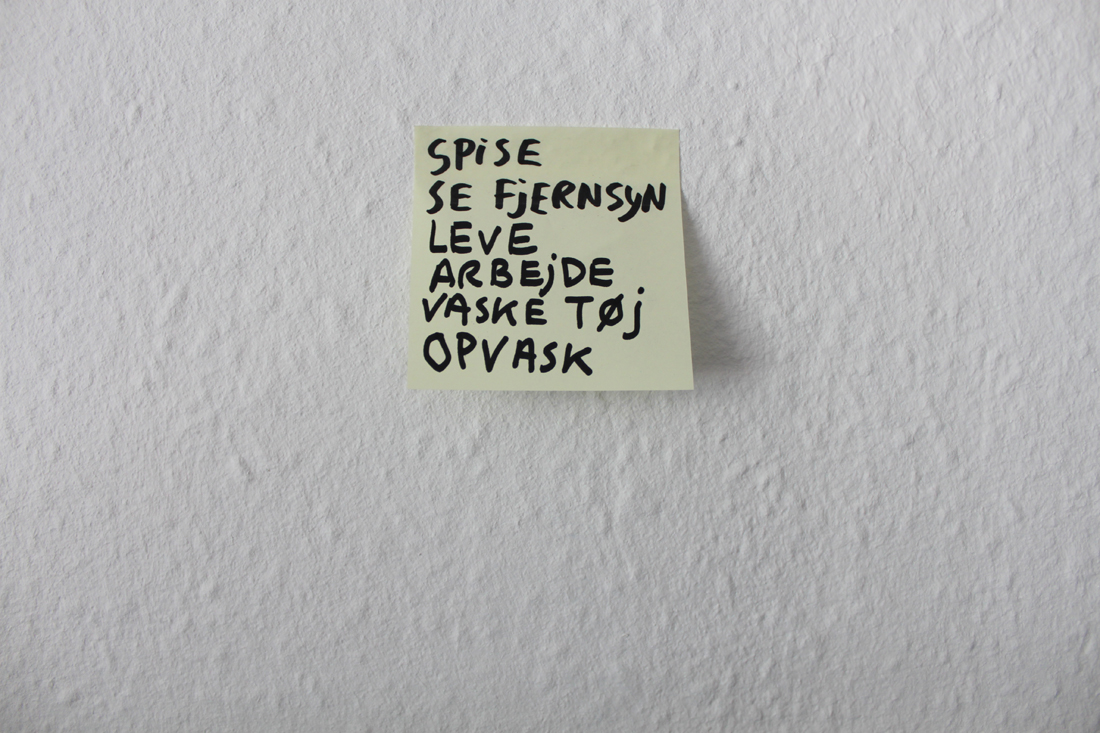 SPiSE
SE FjERNSyN
LEVE
ARBEjDE
VASKE TØj
OPVASK